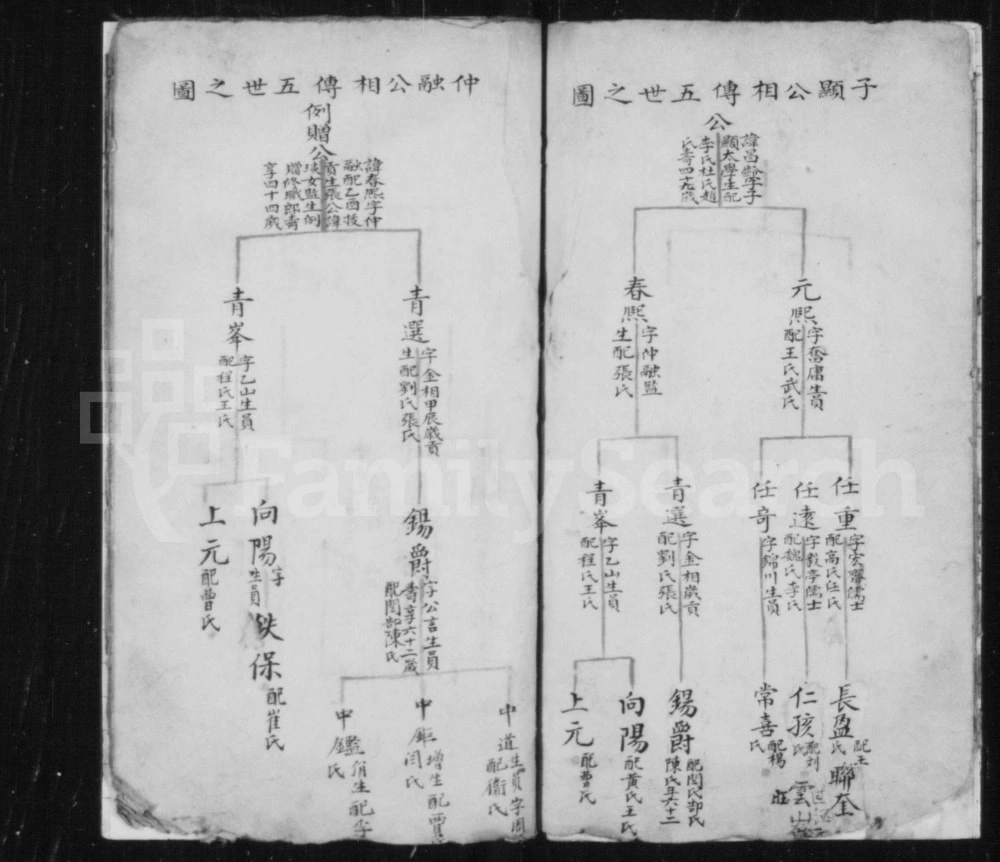 子顯公相傳五世之圖
公
諱昌齡字子
顯太學生配
李氏杜氏趙
氏壽四十九歲
元熙
字奮庸生員
配王氏武氏
春熙
字仲融監
生配張氏
任重
字宏齋儒士
配高氏任氏
任遠
字毅亭儒士
配魏氏李氏
任奇
字錦川生員
青選
字金相歲貢
配劉氏張氏
青峯
字乙山生員
配程氏王氏
長盈
配王
氏
聯奎
仁孩
配刘
氏
雲山
常喜
配楊
氏
錫爵
配閆氏郜氏
陳氏年六十二
向陽
配黃氏王氏
上元
配曹氏
仲融公相傳五世之圖
例贈公
諱春熙字仲
融配乙酉拔
貢生張公諱
女監生例
贈修職郎壽
享四十四歲
青選
字金相甲辰歲貢
生配劉氏張氏
青峯
字乙山生員
配程氏王氏
錫爵
字公言生員
壽享六十二歲
配閆郜陳氏
向陽
字
生員
鉄保
配崔氏
上元
配曹氏
中道
生員字周
配衞氏
中矩
增生配賈
閆氏
中鑑
佾生配李
氏
FamilySearch